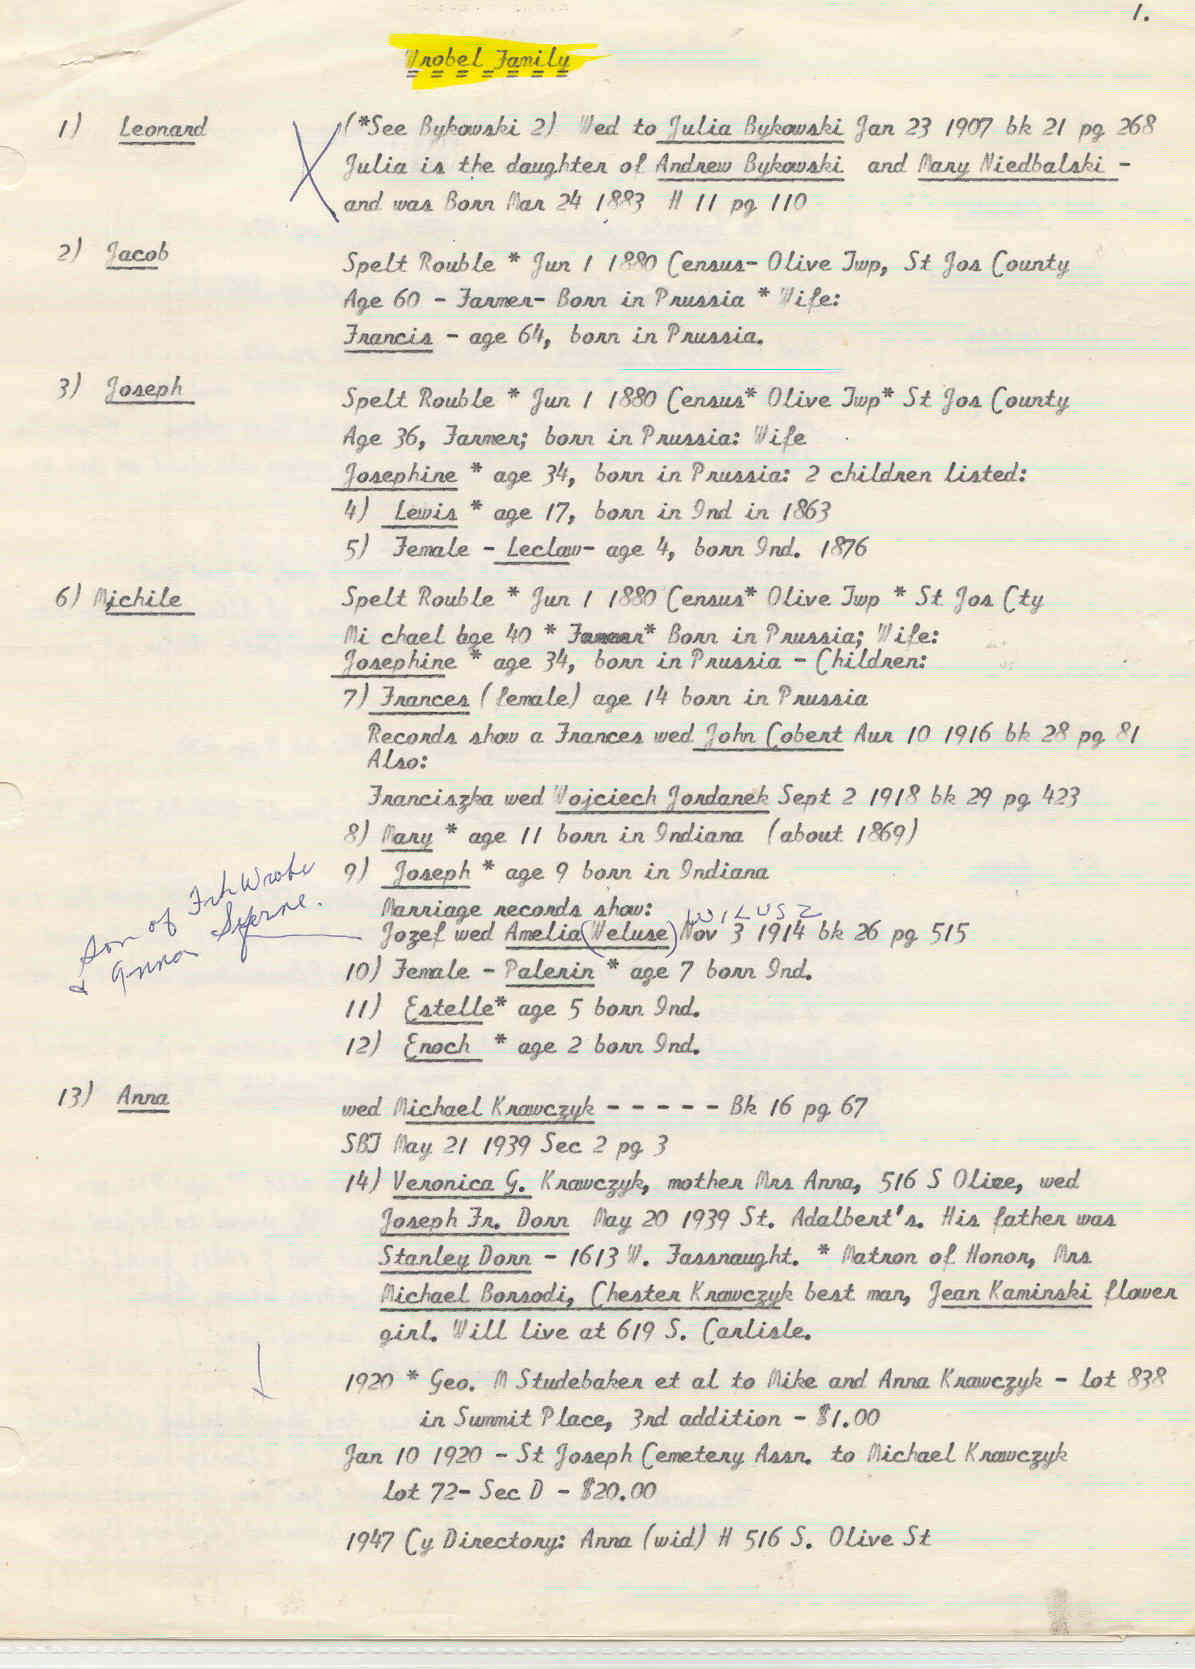 1.
Wrobel Family
1) Leonard (*See Bykowski 2) Wed to Julia Bykowski Jan 23 1907 bk 21 pg 268
Julia is the daughter of Andrew Bykowski and Mary Niedbalski -
and was Born Mar 24 1883 H 11 pg 110
2) Jacob Spelt Rouble * Jun 1 1880 Census- Olive Twp, St Jos County
Age 60 - Farmer- Born in Prussia * Wife:
Francis - age 64, born in Prussia.
3) Joseph Spelt Rouble * Jun 1 1880 Census* Olive Twp* St Jos County
Age 36, Farmer; born in Prussia: Wife
Josephine * age 34, born in Prussia: 2 children listed:
4) Lewis * age 17, born in Ind in 1863
5) Female - Leclaw- age 4, born Ind. 1876
6) Michile Spelt Rouble * Jun 1 1880 Census* Olive Twp * St Jos Cty
Mi chael age 40 * Farmer* Born in Prussia; Wife:
Josephine * age 34, born in Prussia - Children:
7) Frances (female) age 14 born in Prussia
Records show a Frances wed John Cobert Aur 10 1916 bk 28 pg 81
Also:
Franciszka wed Wojciech Jordanek Sept 2 1918 bk 29 pg 423
8) Mary * age 11 born in Indiana (about 1869)
9) Joseph * age 9 born in Indiana
Marriage records show:
WILUSZ
Jozef wed Amelia (Weluse) Nov 3 1914 bk 26 pg 515
Son of Wrobe
& Anna
10) Female - Palerin * age 7 born Ind.
11) Estelle* age 5 born Ind.
12) Enoch * age 2 born Ind.
13) Anna wed Michael Krawczyk - - - - - Bk 16 pg 67
SBT May 21 1939 Sec 2 pg 3
14) Veronica G. Krawczyk, mother Mrs Anna, 516 S Olive, wed
Joseph Fr. Dorn May 20 1939 St. Adalbert's. His father was
Stanley Dorn - 1613 W. Fassnaught. * Matron of Honor, Mrs
Michael Borsodi, Chester Krawczyk best man, Jean Kaminski flower
girl. Will live at 619 S. Carlisle.
1920 * Geo. M Studebaker et al to Mike and Anna Krawczyk - lot 838
in Summit Place, 3rd addition - $1.00
Jan 10 1920 - St Joseph Cemetery Assn. to Michael Krawczyk
lot 72- Sec D - $20.00
1947 Cy Directory: Anna (wid) H 516 S. Olive St